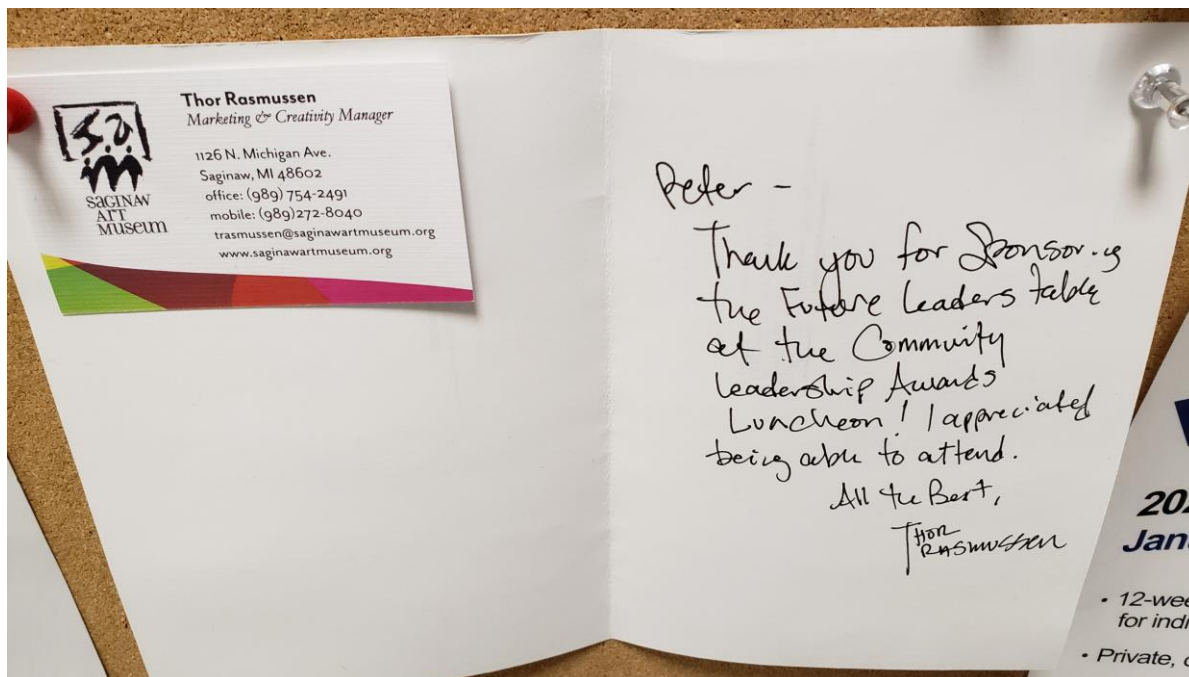 Thor Rasmussen
Marketing & Creativity Manager
1126 N. Michigan Ave.
Saginaw, MI 48602
office: (989) 754-2491
mobile: (989)272-8040
trasmussen@saginawartmuseum.org
www.saginawartmuseum.org
sa
m
SAGINAW
ART
MUSEUM
Peter -
Thank you for Sponsoring
the Future Leaders table
at the Community
Leadership Awards
Luncheon! I appreciated
being able to attend.
All the Best,
THOR
RASMUSSEN
202
Jan
• 12-wee
for indi
• Private,